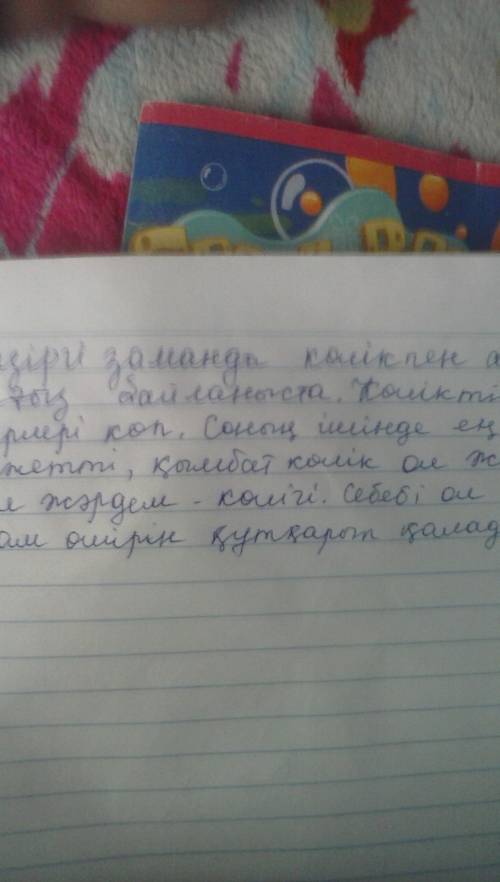 зіргі заманда колікпен а
тың байланыста. Колікті
рлері коп. Соның ішінде ең
жетті, қымбат колік ол ж
л жәрдем - колігі. Себебі ол
ам омірін құтқарып қалад